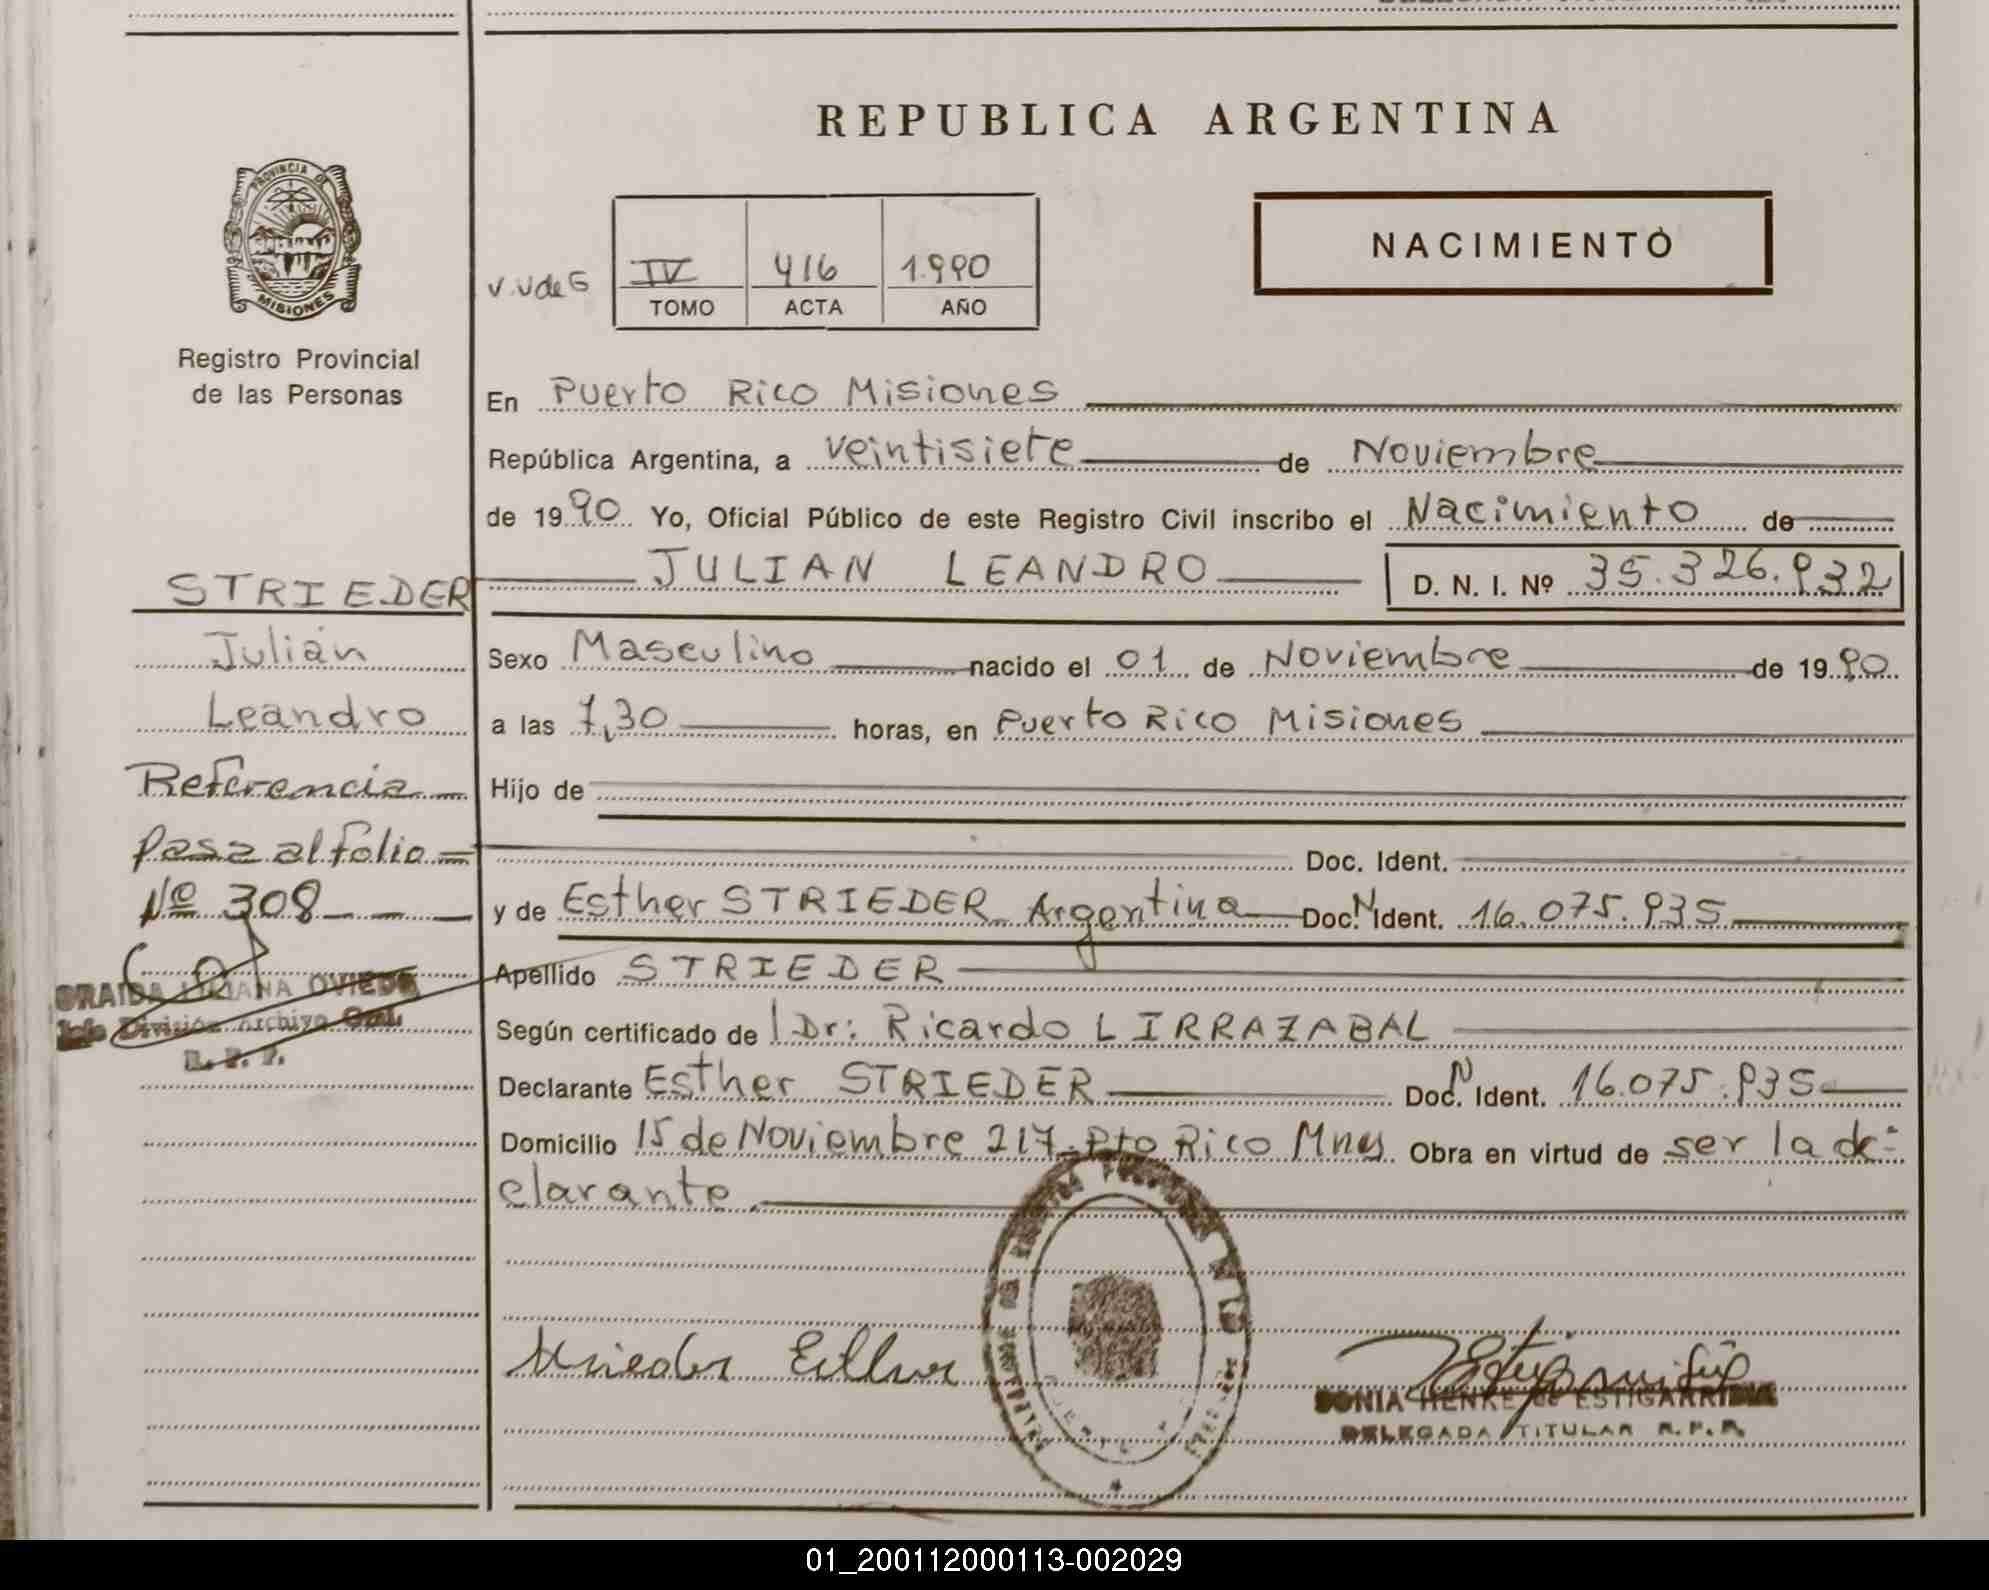 REPUBLICA ARGENTINA
PROVINCIA DE
MISIONES
Registro Provincial
de las Personas
NACIMIENTO
V.Ude G
IV 416 1.990
TOMO ACTA AÑO
En Puerto Rico Misiones
República Argentina, a veintisiete de Noviembre
de 1990 Yo, Oficial Público de este Registro Civil inscribo el Nacimiento de
JULIAN LEANDRO D. N. I. Nº 35.326.932
STRIEDER
Julián
Leandro
Referencia
Pasa al folio
Nº 308
ORAIDA LILIANA OVIEDO
Jefe División Archivo Gral.
R. P. P.
Sexo Masculino nacido el 01 de Noviembre de 1990
a las 7,30 horas, en Puerto Rico Misiones
Hijo de
Doc. Ident.
y de Esther STRIEDER Argentina Doc. N. Ident. 16.075.935
Apellido STRIEDER
Según certificado de Dr: Ricardo LIRRAZABAL
Declarante Esther STRIEDER Doc. N. Ident. 16.075.935
Domicilio 15 de Noviembre 217-Pto Rico Mnes Obra en virtud de ser la de-
clarante
Strieder Esther
SONIA HENKE de ESTIGARRIBIA
DELEGADA TITULAR R.P.P.
01_200112000113-002029